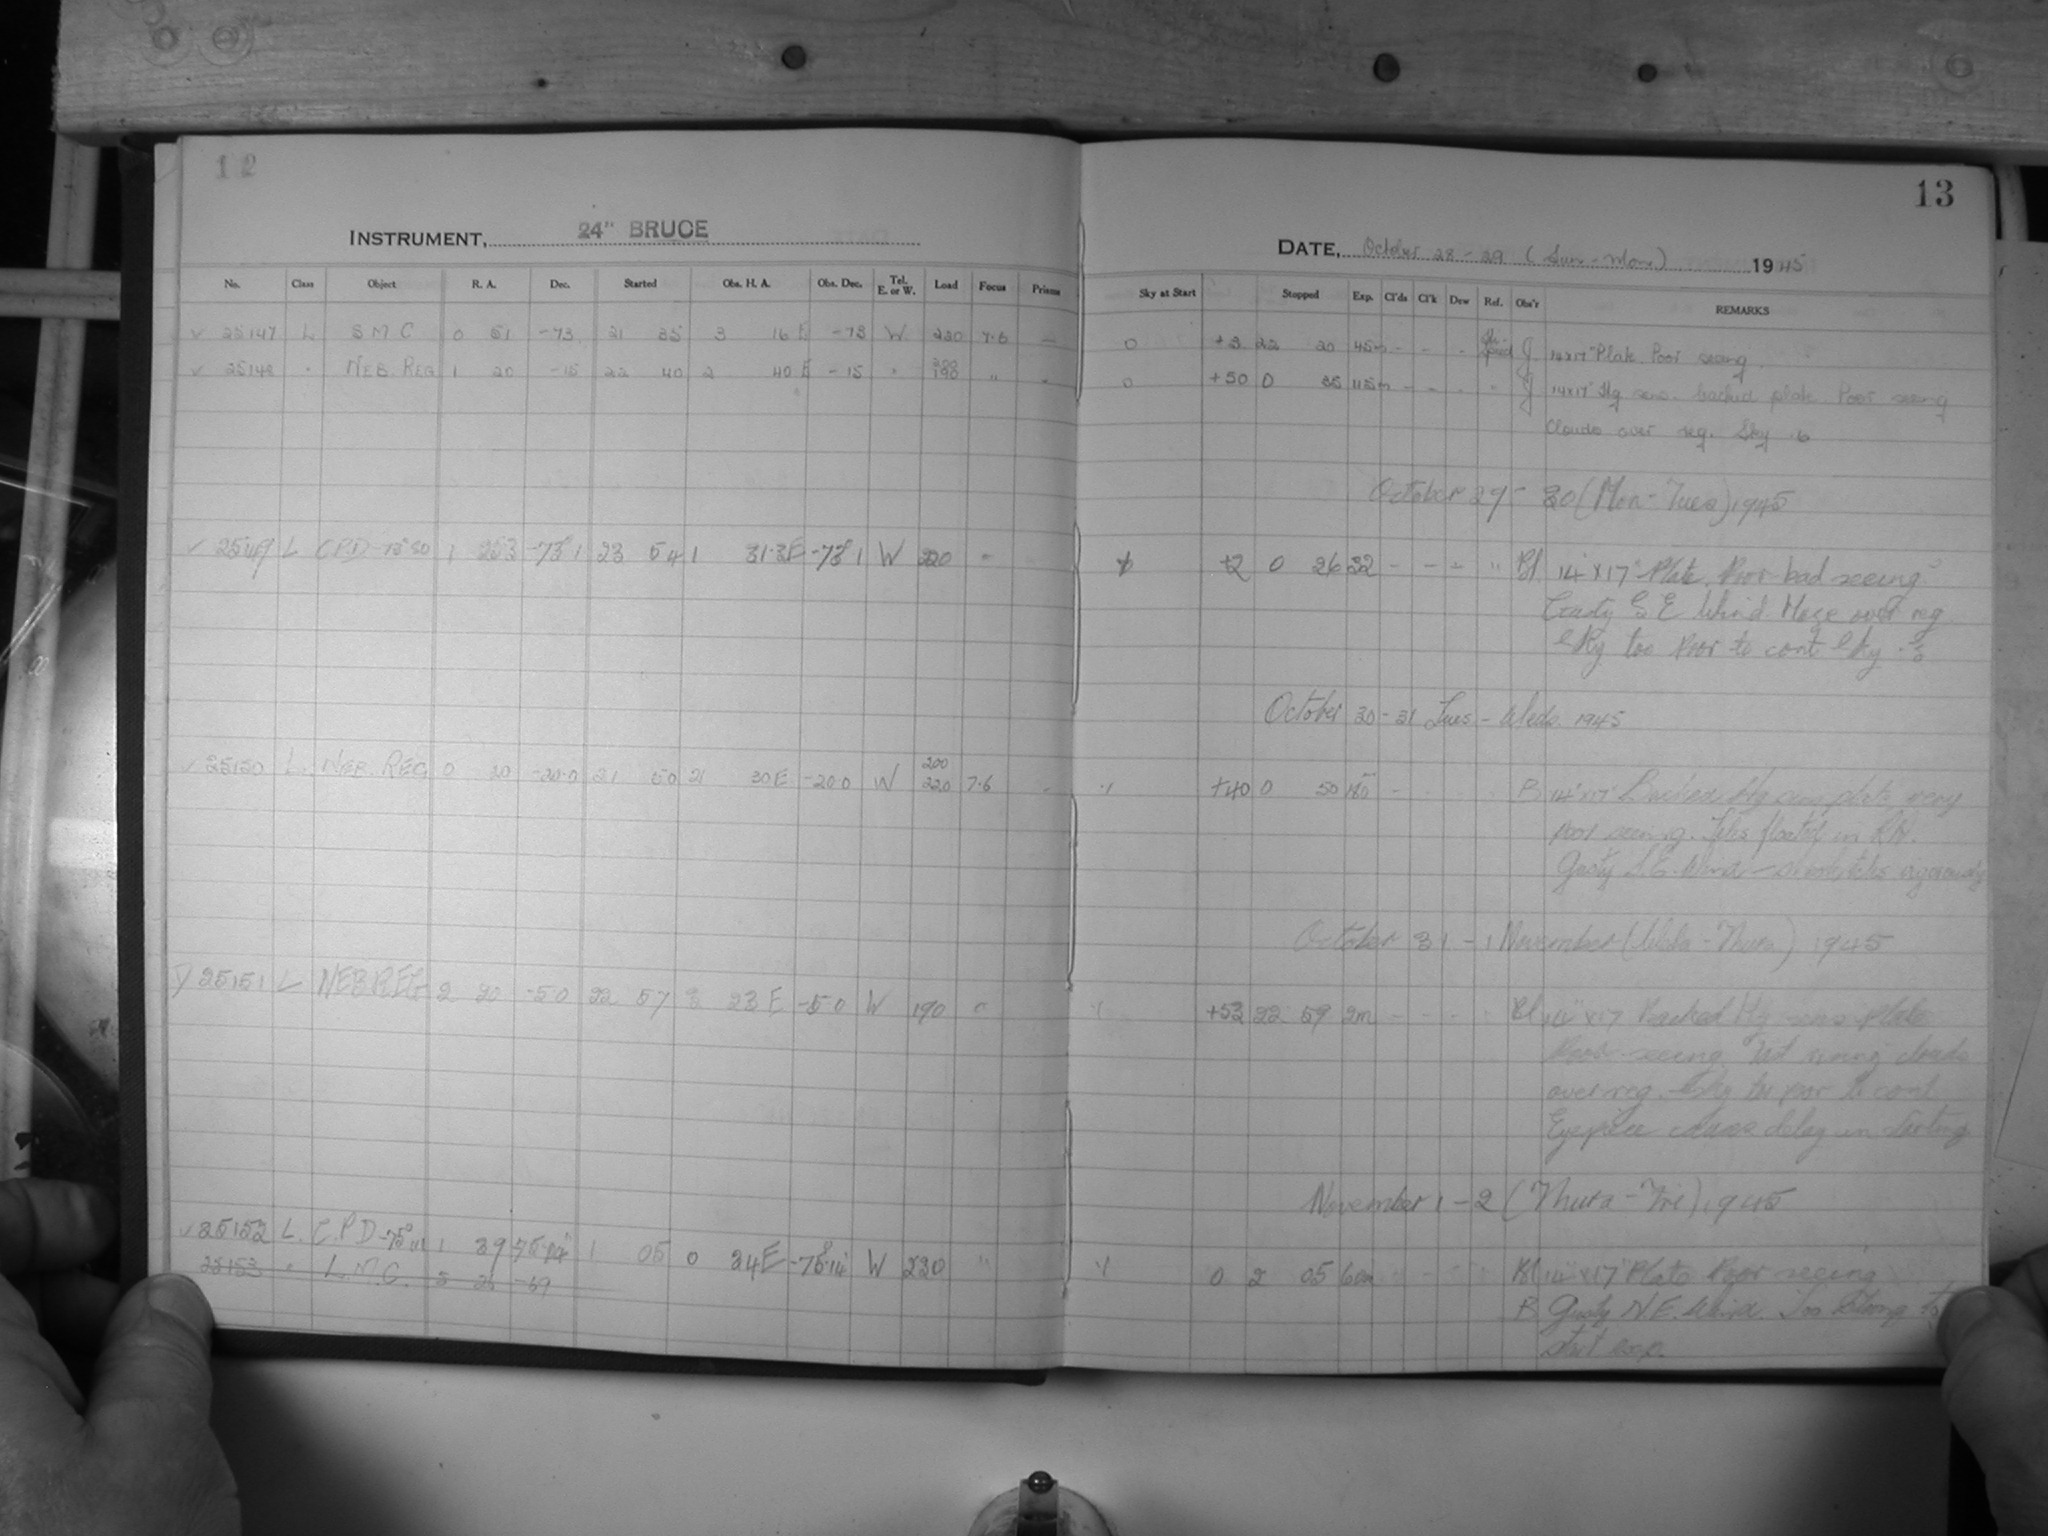 12
INSTRUMENT, 24" BRUCE
No. Class Object R. A. Dec. Started Obs. H. A. Obs. Dec. Tel. E. or W. Load Focus Prisms
25147 L S M C 0 51 -73 21 35 3 16 E -73 W 220 7.6
25148 " NEB. REG 1 20 -15 22 40 2 40 E -15 " 200 190 "
25149 L CPD 1 -73° 1 23 54 1 31.3E -73° 1 W 220 "
25150 L. NEB. REG 0 20 -20.0 21 50 21 30 E -20.0 W 200 220 7.6
25151 L NEB REG 2 20 -5.0 22 57 3 23 E -5.0 W 190 "
25152 L. C.P.D -75° 1 39 1 05 0 34 E -75°14' W 220 "
25153 " L.M.C. 5 26 -69
13
DATE, October 28 - 29 (Sun - Mon) 1945
Sky at Start Stopped Exp. Cl'ds Cl'k Dew Ref. Obs'r REMARKS
0 +3 22 20 45m - - - J. 14x17" Plate. Poor seeing
0 +50 0 35 115m - - - " J 14x17" Hg sens. backed plate. Poor seeing
Clouds over reg. Sky
October 29 - 30 (Mon - Tues) 1945
+2 0 26 32 - - - " Bl 14" x 17" Plate. Poor bad seeing
Gusty S E Wind. Haze over reg
Sky too Poor to cont Sky
October 30 - 31 Tues - Weds. 1945
+40 0 50 180 - B 14" x 17" Backed Hg sens plate very
poor seeing. floated in RA.
Gusty S.E. Wind - vigorously
October 31 - 1 November (Weds - Thurs) 1945
+53 22 59 2m - - - Bl 14" x 17" Backed Hg sens plate
Poor seeing clouds
over reg. Sky too poor to cont
Eyepiece cause delay in starting
November 1 - 2 (Thurs - Fri) 1945
0 2 05 60m Bl 14" x 17" Plate Poor seeing
B Gusty N.E. Wind. Too to
start exp.